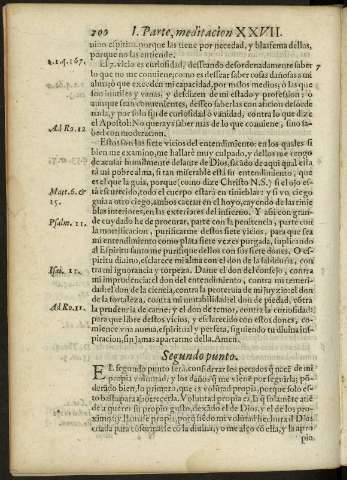 200 I. Parte, meditacion XXVII.
uino espiritu, porque las tiene por necedad, y blasfema dellas,
porque no las entiende.
2.2.q.167. El 7. vicio es curiosidad, desseando desordenadamente saber 7
lo que no me conuiene; como es dessear saber cosas dañosas a mi
alma; o que exceden mi capacidad, por malos medios; o las que
son inutiles y vanas, y desdizen de mi estado y profession: o
aunque sean conuenientes, desseo saberlas con aficion desorde
nada, y por solo fin de curiosidad o vanidad, contra lo que dize
Ad Ro. 12 el Apostol: No querays saber mas de lo que conuiene, sino sa-
bed con moderacion.
Estos son los siete vicios del entendimiento: en los quales si
bien me examino, me hallaré muy culpado, y dellos me tengo
de acusar humilmente delante de Dios, sacãdo de aqui qual esta
rà mi pobre alma, si tan miserable està su entendimiento, que
Matt. 6. & es el que la guia, porque (como dize Christo N.S.) si el ojo es-
15. tà escurecido, todo el cuerpo estarà en tinieblas: y si vn ciego
guia a otro ciego, ambos caeran en el hoyo, cayendo de las tinie
blas interiores, en las exteriores del infierno. Y assi con gran-
Psalm. 11. de cuydado he de procurar, parte con la penitencia, parte con
la mortificacion, purificarme destos siete vicios, para que sea
mi entendimiento como plata siete vezes purgada, suplicando
al Espiritu santo me purifique dellos con sus siete dones. O es-
piritu diuino, esclarece mi alma con el don de la sabiduria, con
Isai. 11. tra mi ignorancia y torpeza. Dame el don del consejo, contra
mi imprudencia: el don del entendimiento, contra mi temeri-
dad: el don de la ciencia, contra la proteruia de mi juyzio: el don
de la fortaleza, contra mi mutabilidad: el don de piedad, cõtra
Ad Ro. 12. la prudencia de carne: y el don de temor, contra la curiosidad:
para que libre destos vicios, y esclarecido con estos dones, co-
mience vna nueua, espiritual y perfeta, siguiendo tu diuina ins-
piracion, sin jamas apartarme della. Amen.
Segundo punto.
EL segundo punto serà, considerar los pecados q̃ nacẽ de mi
propia voluntad, y los daños q̃ me vienẽ por seguirla; põ-
derãdo bien, lo primero, que es voluntad propia, porque solo es-
to basta para aborrecerla. Voluntad propia es, la q̃ solamẽte atiẽ
de a querer su propio gusto, dexãdo el de Dios, y el de los pro-
ximos;
criada para conformarse cõ la diuina, yo me alço cõ ella, y la apro
pio,